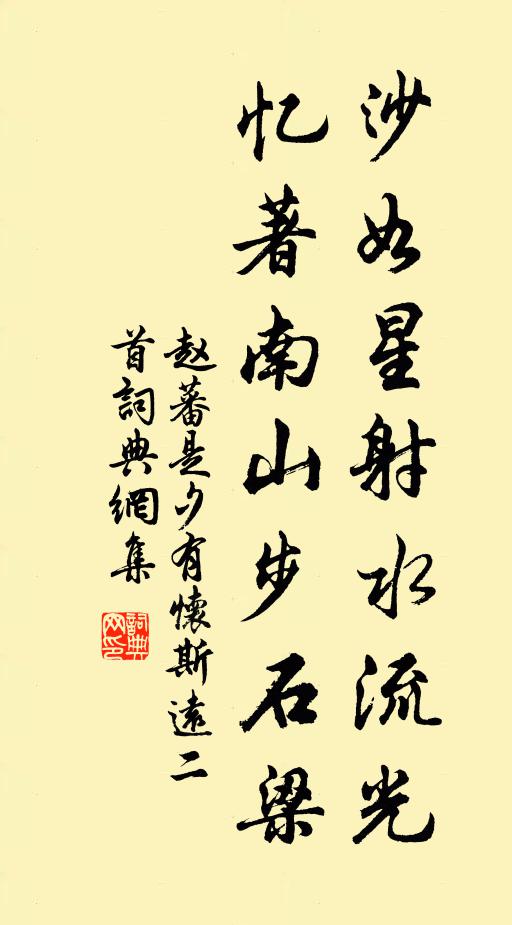 沙如星射水流光
忆著南山步石梁
赵蕃是夕有懷斯遠二
首詞典網集
詞典
网印